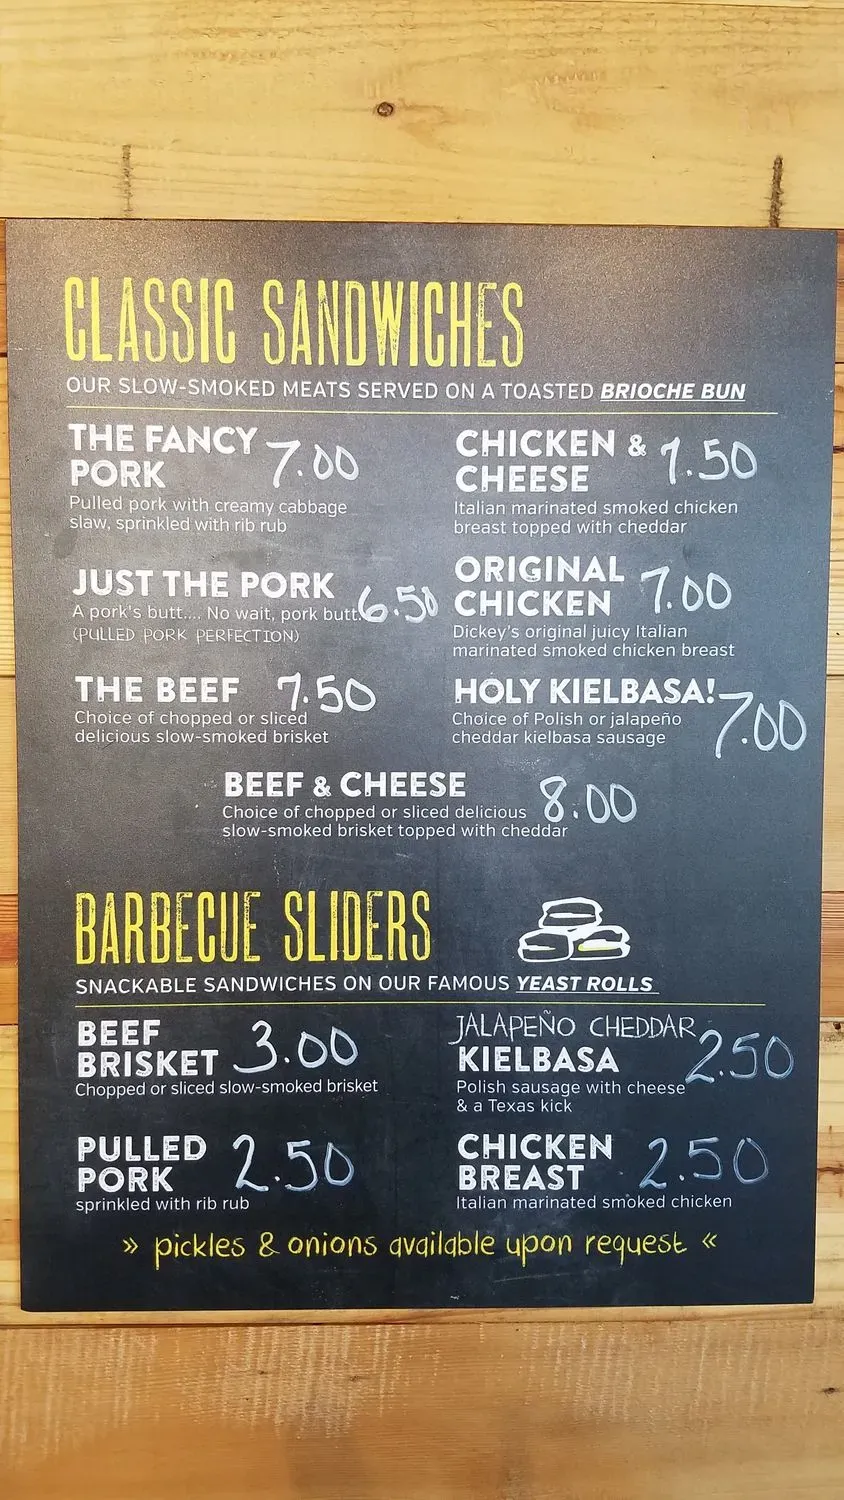 CLASSIC SANDWICHES
OUR SLOW-SMOKED MEATS SERVED ON A TOASTED BRIOCHE BUN
THE FANCY PORK 7.00
Pulled pork with creamy cabbage
slaw, sprinkled with rib rub
CHICKEN & CHEESE 7.50
Italian marinated smoked chicken
breast topped with cheddar
JUST THE PORK 6.50
A pork's butt.... No wait, pork butt.
(PULLED PORK PERFECTION)
ORIGINAL CHICKEN 7.00
Dickey's original juicy Italian
marinated smoked chicken breast
THE BEEF 7.50
Choice of chopped or sliced
delicious slow-smoked brisket
HOLY KIELBASA! 7.00
Choice of Polish or jalapeño
cheddar kielbasa sausage
BEEF & CHEESE 8.00
Choice of chopped or sliced delicious
slow-smoked brisket topped with cheddar
BARBECUE SLIDERS
SNACKABLE SANDWICHES ON OUR FAMOUS YEAST ROLLS
BEEF BRISKET 3.00
Chopped or sliced slow-smoked brisket
JALAPEÑO CHEDDAR
KIELBASA 2.50
Polish sausage with cheese
& a Texas kick
PULLED PORK 2.50
sprinkled with rib rub
CHICKEN BREAST 2.50
Italian marinated smoked chicken
» pickles & onions available upon request «